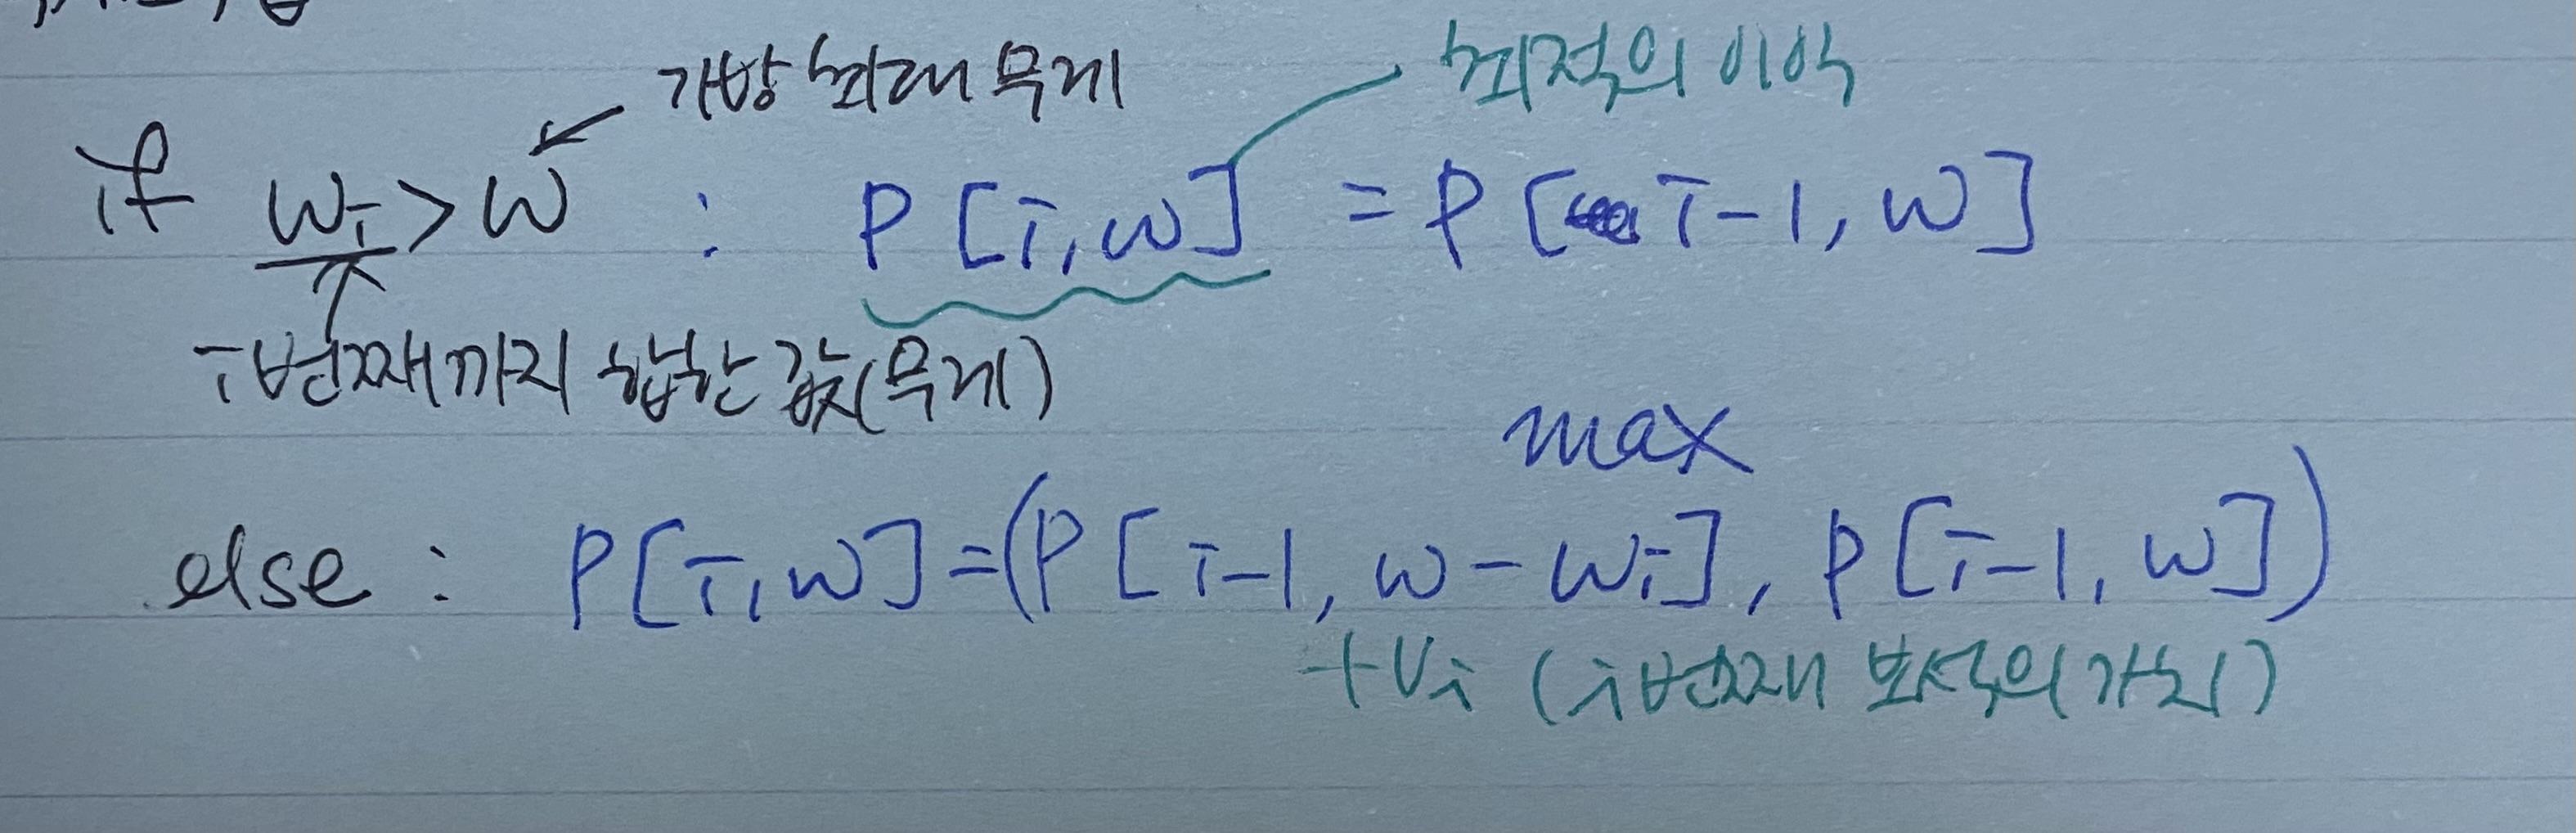 가방 최대 무게
최적의 이익
if wi > w : P[i, w] = P[i-1, w]
i번째까지 합한 값(무게)
max
else : P[i, w] = (P[i-1, w-wi], P[i-1, w])
+vi (i번째 보석의 가치)